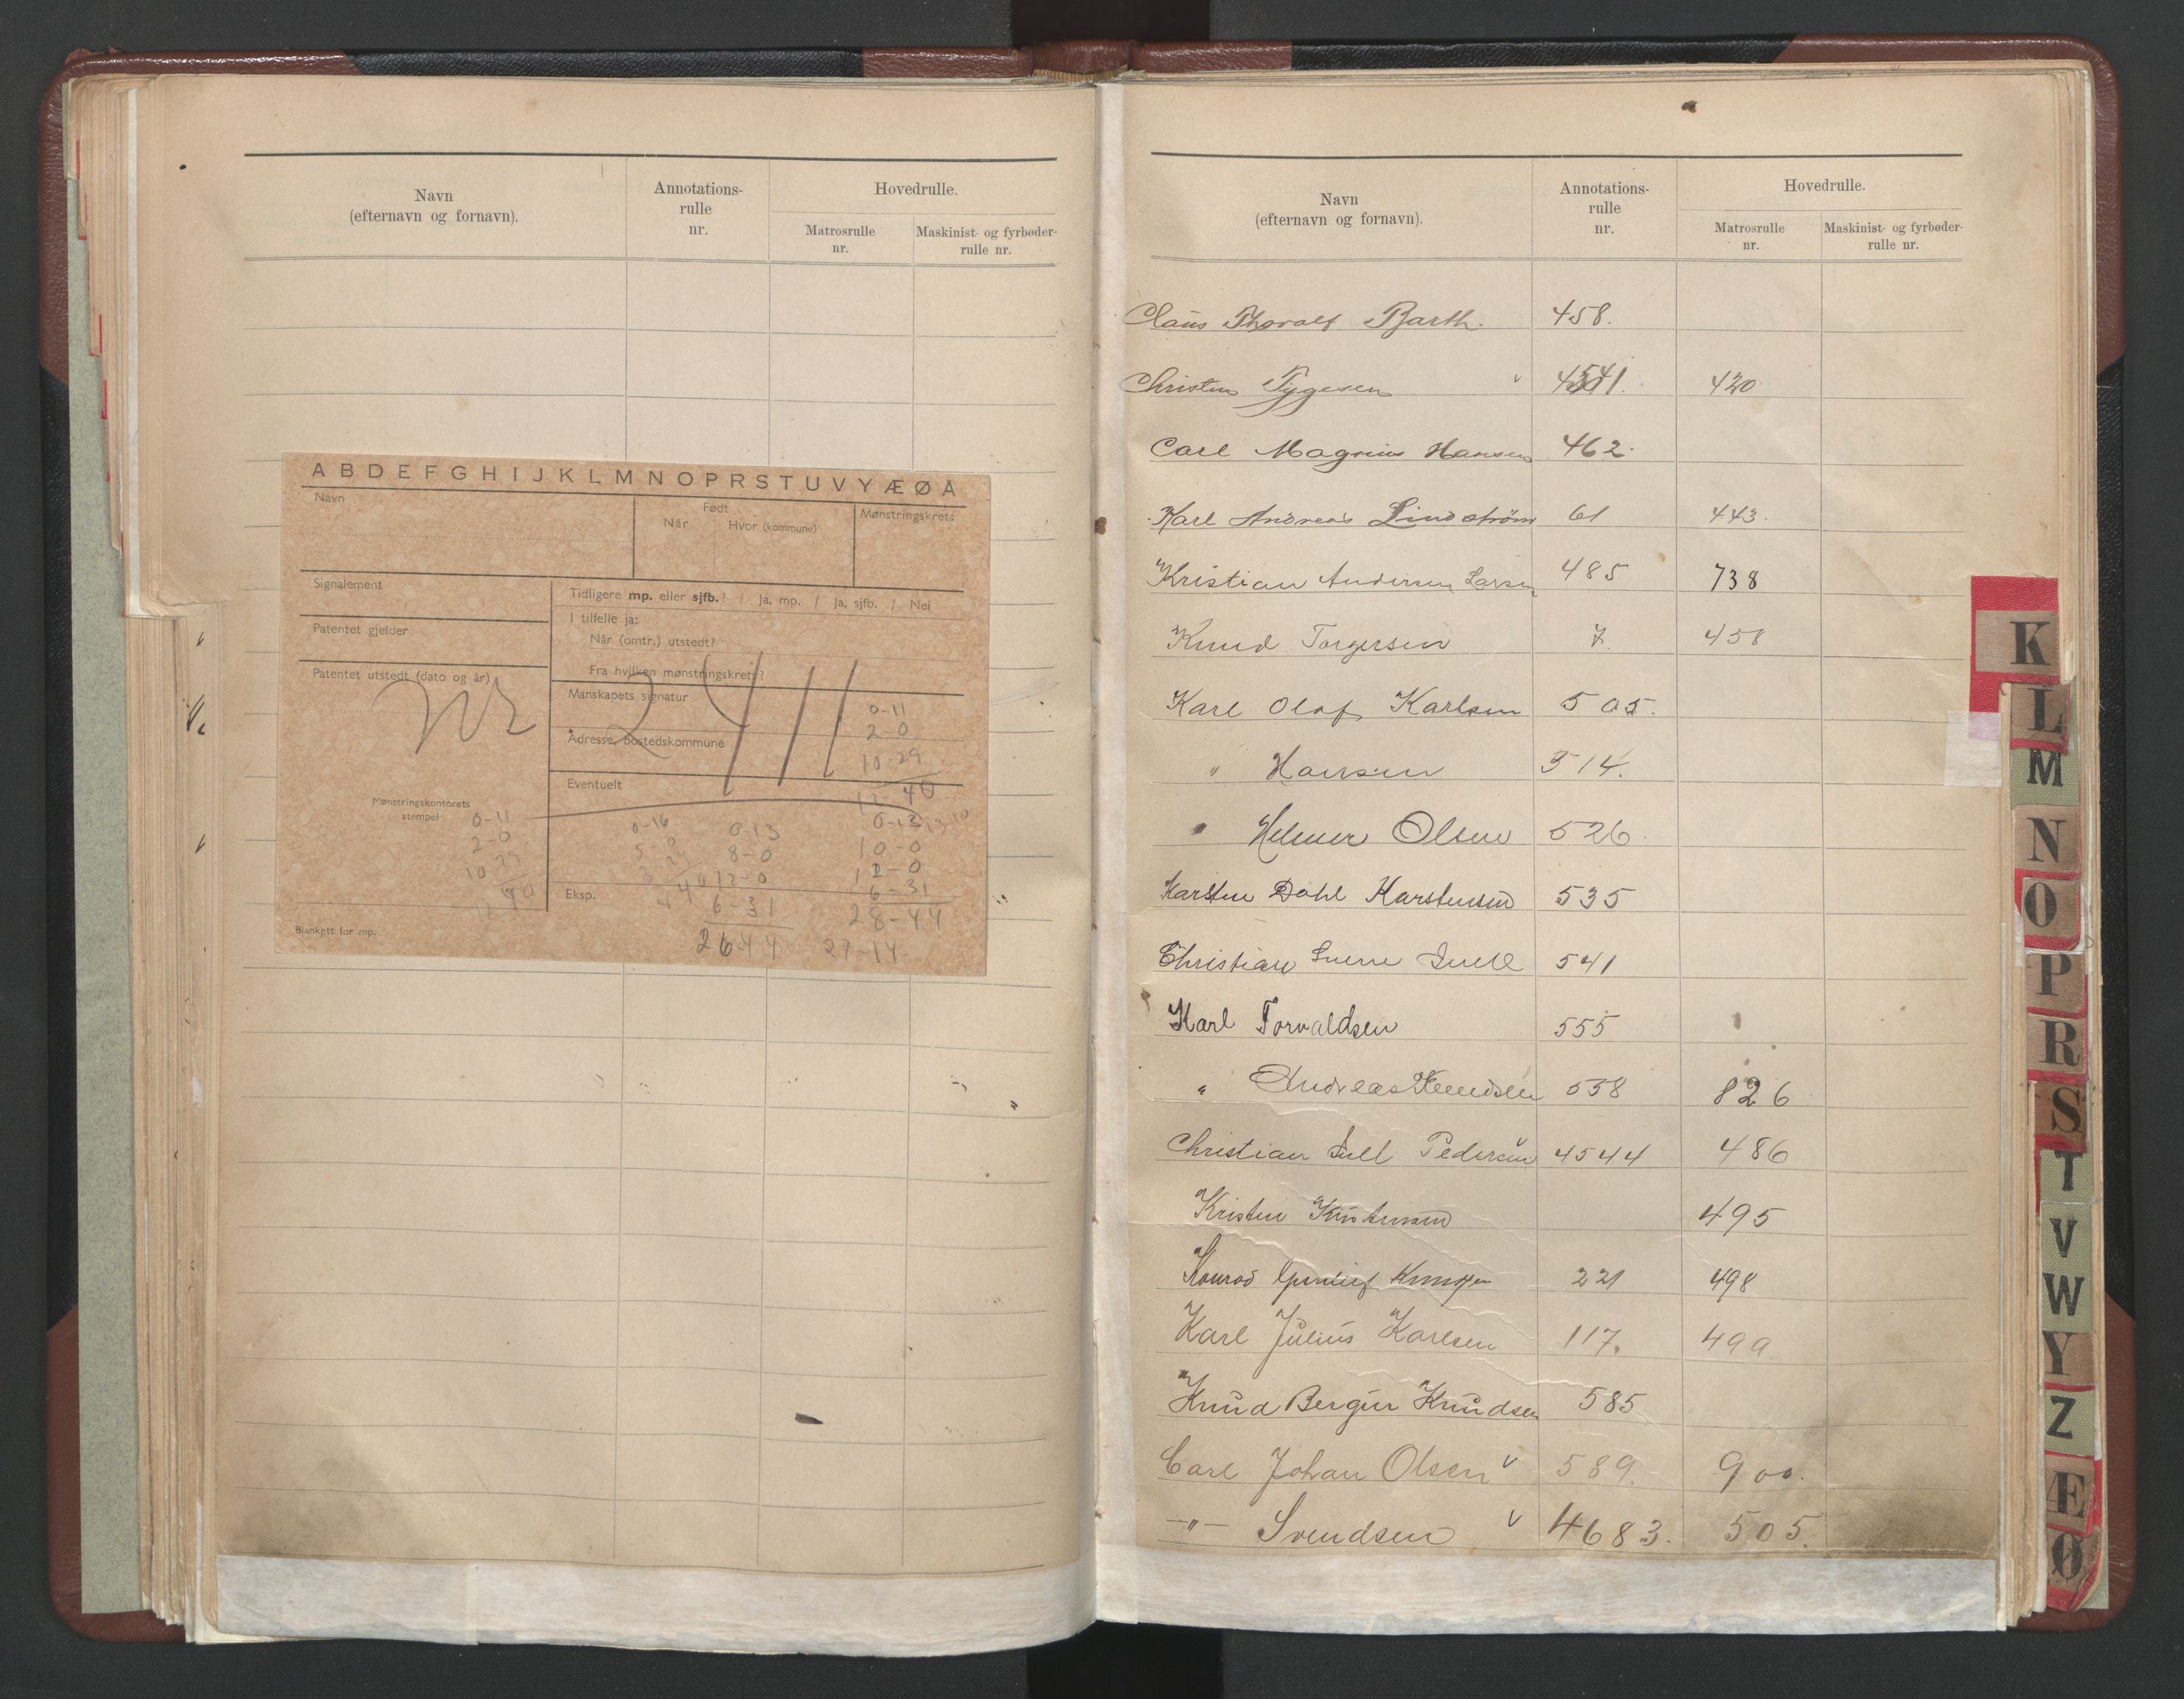 Navn
(efternavn og fornavn).
Annotations-
rulle
nr.
Hovedrulle.
Matrosrulle
nr.
Maskinist- og fyrbøder-
rulle nr.
A B D E F G H I J K L M N O P R S T U V Y Æ Ø Å
Navn
Født
Når
Hvor (kommune)
Mønstringskrets
Signalement
Patentet gjelder
Patentet utstedt (dato og år)
Mønstringskontorets
stempel
Blankett for mp.
Tidligere mp. eller sjfb.? / Ja, mp. / Ja, sjfb. / Nei
I tilfelle ja:
Når (omtr.) utstedt?
Fra hvilken mønstringskrets?
Manskapets signatur
Adresse, bostedskommune
Eventuelt
Eksp.
0-11
2-0
10-29
12-40
0-11
2-0
10 29
0-16
5-0
0-13
8-0
12-0
6-31
26 44
0-13
13-10
10-0
12-0
6-31
28-44
27-14
Navn
(efternavn og fornavn).
Annotations-
rulle
nr.
Hovedrulle.
Matrosrulle
nr.
Maskinist- og fyrbøder-
rulle nr.
Claus Thoralf Barth. 458.
Christen Tygesen v 4541. 420
Carl Magnus Hansen 462.
Karl Andreas Lindstrøm 61 443.
Kristian Andersen Larsen 485 738
Knud Torgersen 7. 458
Karl Olaf Karlsen 505.
" Hansen 514.
" Helmer Olsen 526.
Karsten Dahl Karstensen 535
Christian Juell 541
Karl Torvaldsen 555
" Andreas Knudsen 558 826
Christian Jull Pedersen v 4544 486
Kristen Kristensen 495
Konrad 221 498
Karl Julius Karlsen 117. 499
Knud Bergur Knudsen 585
Carl Johan Olsen v 589. 900.
-"- Svendsen v 4683. 505.
K
L
M
N
O
P
R
S
T
V
W
Y
Z
Æ
Ø